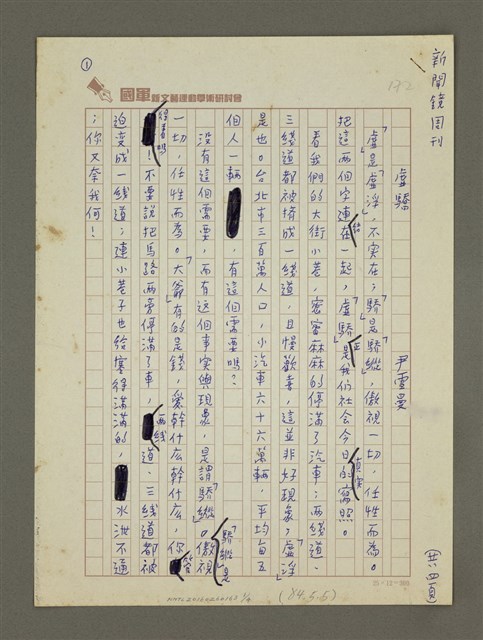 新聞鏡周刊
①
132
國軍新文藝運動學術研討會
虛驕 尹雪曼
「虛」是「虛浮」，不實在；「驕」是「驕縱」，傲視一切，任性而為。
把這兩個字連結在一起，「虛驕」正是我們社會今日的真實寫照。
看我們的大街小巷，密密麻麻的停滿了汽車；兩綫道、
三綫道都被擠成一綫道，且慢歡喜，這並非好現象，「虛浮」
是也。台北市三百萬人口，小汽車六十六萬輛，平均每五
個人一輛，有這個需要嗎？
沒有這個需要，而有这個事实與現象，是謂「驕縱」。「驕縱」是傲視
一切，任性而為。「大爺」有的是錢，愛幹什么幹什么，你管
得着嗎！不要說把馬路兩旁停滿了車，兩线道、三线道都被
迫变成一线道；連小巷子也给塞得滿滿的，水泄不通
；你又奈我何！
(共5頁)
25×12=300
(84.5.5)